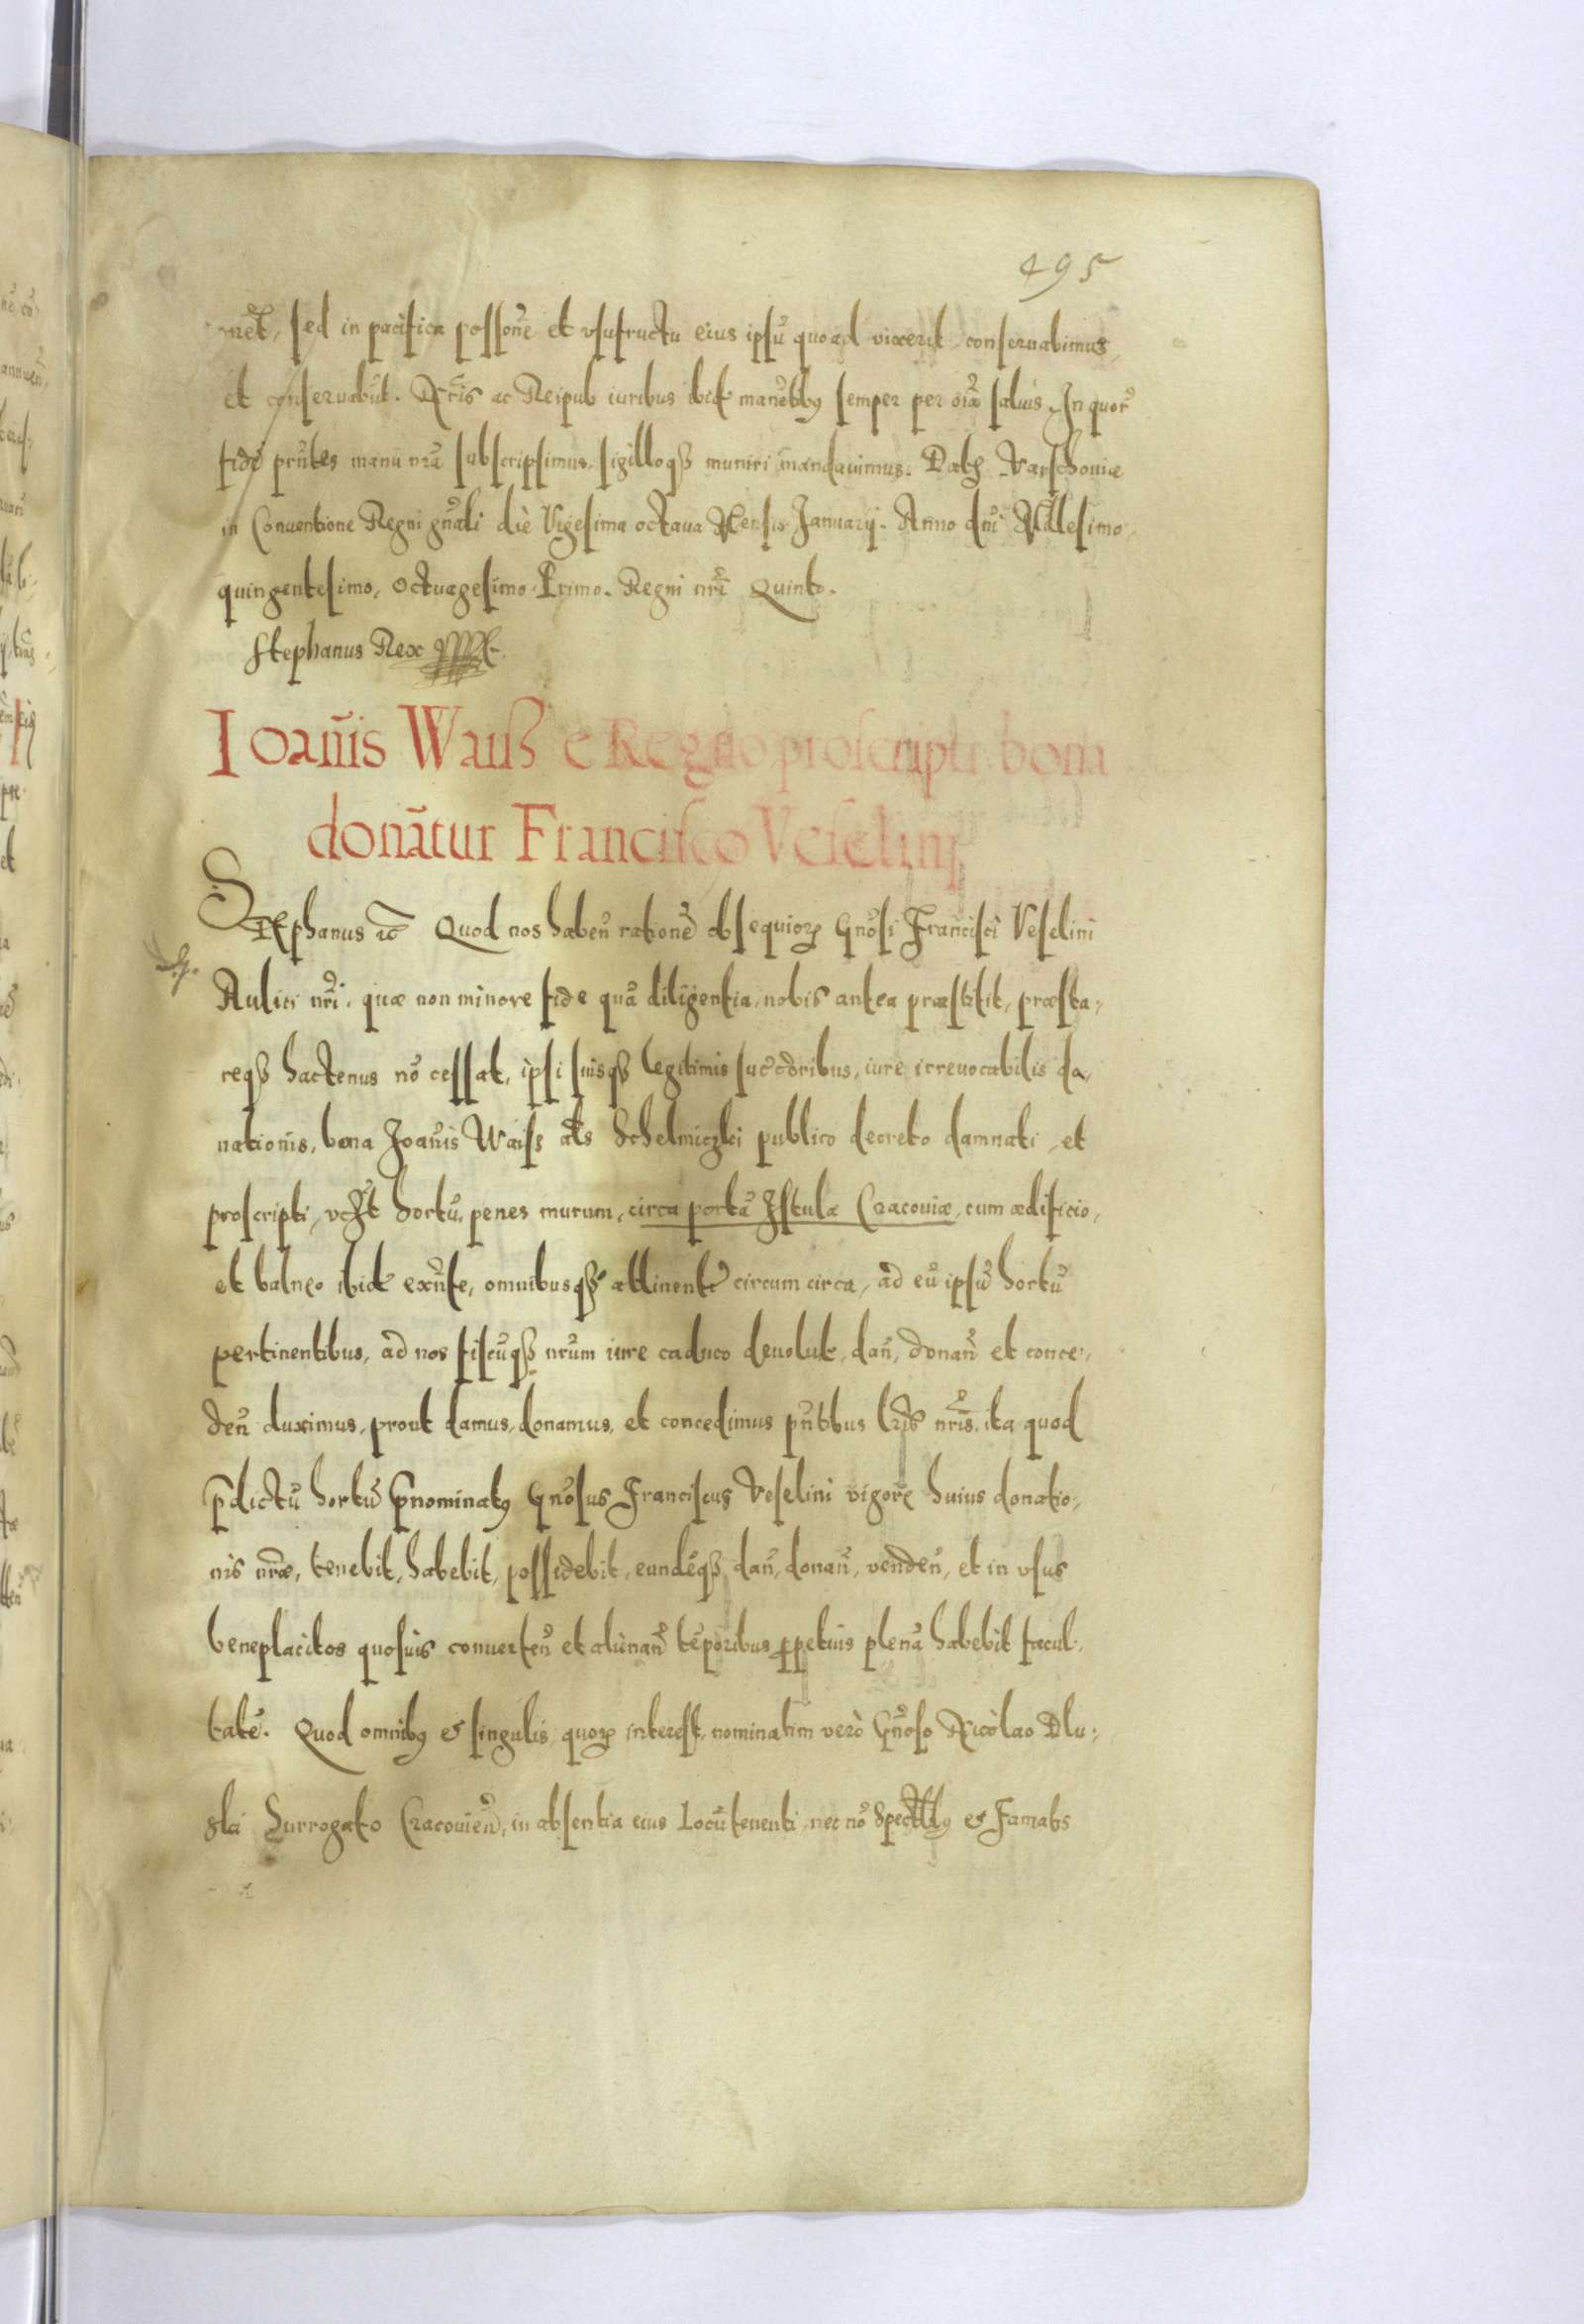 495
net, sed in pacifica possone et vsufructu eius ipsũ quoad vixerit conseruabimus,
et conseruabũt. Nris ac Reipub iuribus ibid manẽtibus semper per oĩa saluis. In quor
fidẽ pñtes manu nrã subscripsimus, sigilloqз muniri mandauimus. Datз Varschouiæ
in Conuentione Regni gñali die Vigesima octaua Mensis Januarij. Anno dñi Millesimo
quingentesimo, Octuagesimo Primo. Regni nrĩ Quinto.
Stephanus Rex
Ioañis Waiß e Regno proscripti bona
donãtur Francisco Veselini
Stephanus ɾc̃ Quod nos habeñ rationẽ obsequioꝝ Gñosi Francisci Veselini
Aulici nrĩ, quæ non minore fide quã diligentia nobis antea præstitit, præsta,
reqз hactenus nõ cessat, ipsi suisqз legitimis succõribus, iure irreuocabilis da,
nationis, bona Joañis Waiss als Schelmiczki publico decreto damnati, et
proscripti, vczt hortũ, penes murum, circa portã Istulæ Cracouiæ, cum ædificio,
et balneo ibid exñte, omnibusqз attinent circum circa, ad eũ ipsũ hortũ
pertinentibus, ad nos fiscũqз nrum iure caduco deuolut, dañ, donañ et conce,
deñ duximus, prout damus, donamus, et concedimus pñtibus lris nris. ita quod
p̃dictũ hortũ p̃nominatꝰ Gñosus Franciscus Veselini vigore huius donatio,
nis nræ, tenebit, habebit, possidebit, eundẽqз dañ, donañ, vendeñ, et in vsus
beneplacitos quosuis conuerteñ et alienañ tẽporibus ꝑpetuis plenã habebit facul,
tatẽ. Quod omnibꝰ & singulis quoꝝ interest, nominatim verò Gñoso Nicolao Dlu,
ski Surrogato Cracouieñ, in absentia eius Locũtenenti, nec nõ Specttbꝰ & Famatis